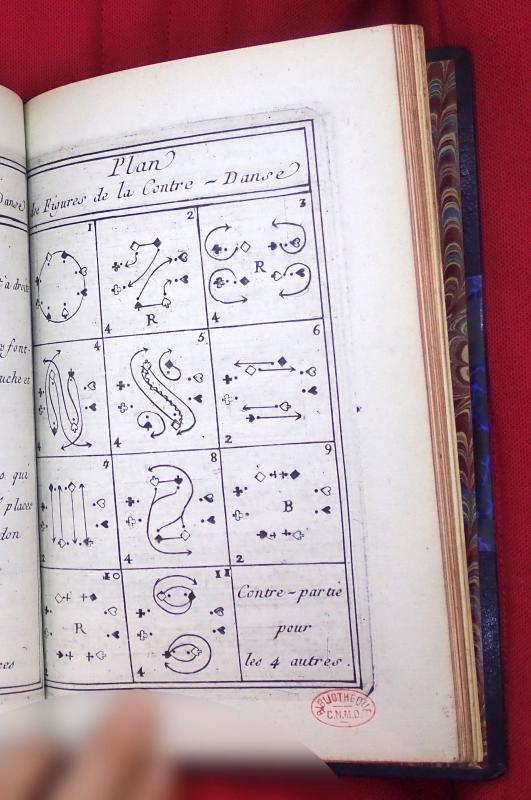 Plan
des Figures de la Contre - Danse
1
2
3
4
R
4
R
4
4
5
6
4
4
2
7
8
9
2
4
B
2
10
11
R
4
4
Contre - partie
pour
les 4 autres.
BIBLIOTHEQUE
C.N.M.D.
Danse
t'a droite
font
uche et
s qui
places
don